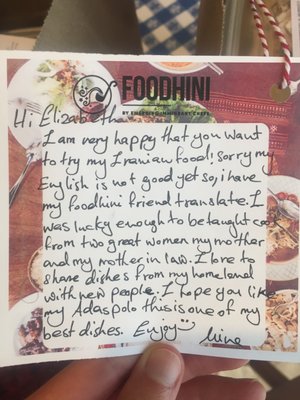 FOODHINI
BY EMERGING IMMIGRANT CHEFS
Hi Elizabeth
I am very happy that you want
to try my Iranian food! Sorry my
English is not good yet so, i have
my foodhini friend translate. I
was lucky enough to be taught co
from two great women my mother
and my mother in law. I love to
share dishes from my homeland
with new people. I hope you like
my Adaspolo this is one of my
best dishes. Enjoy